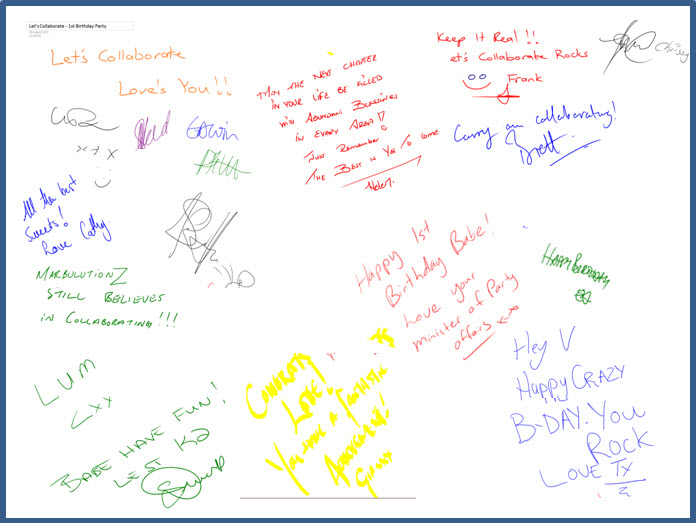 Let's Collaborate - 1st Birthday Party
Let's Collaborate
Love's You!!
May The Next Chapter
in your life be filled
with Abundant Blessings
in every Area!!
Just Remember!
The Best is Yet To Come
Helen
Keep It Real!!
et's Collaborate Rocks
Frank
Chrissy
Carry on collaborating!
Brett
Edwin
x-+ x
All the best
Sweets!
Love Cathy
MarbolutionZ
Still Believes
in Collaborating!!!
Happy 1st
Birthday Babe!
Love your
minister of Party
affars
Happy Birthday
Lum
Lxx
Babe Have Fun!
Lest K2
Congrats
Love!
You have a Fantastic
Hey V
Happy Crazy
B-Day. You
Rock
Love Tx